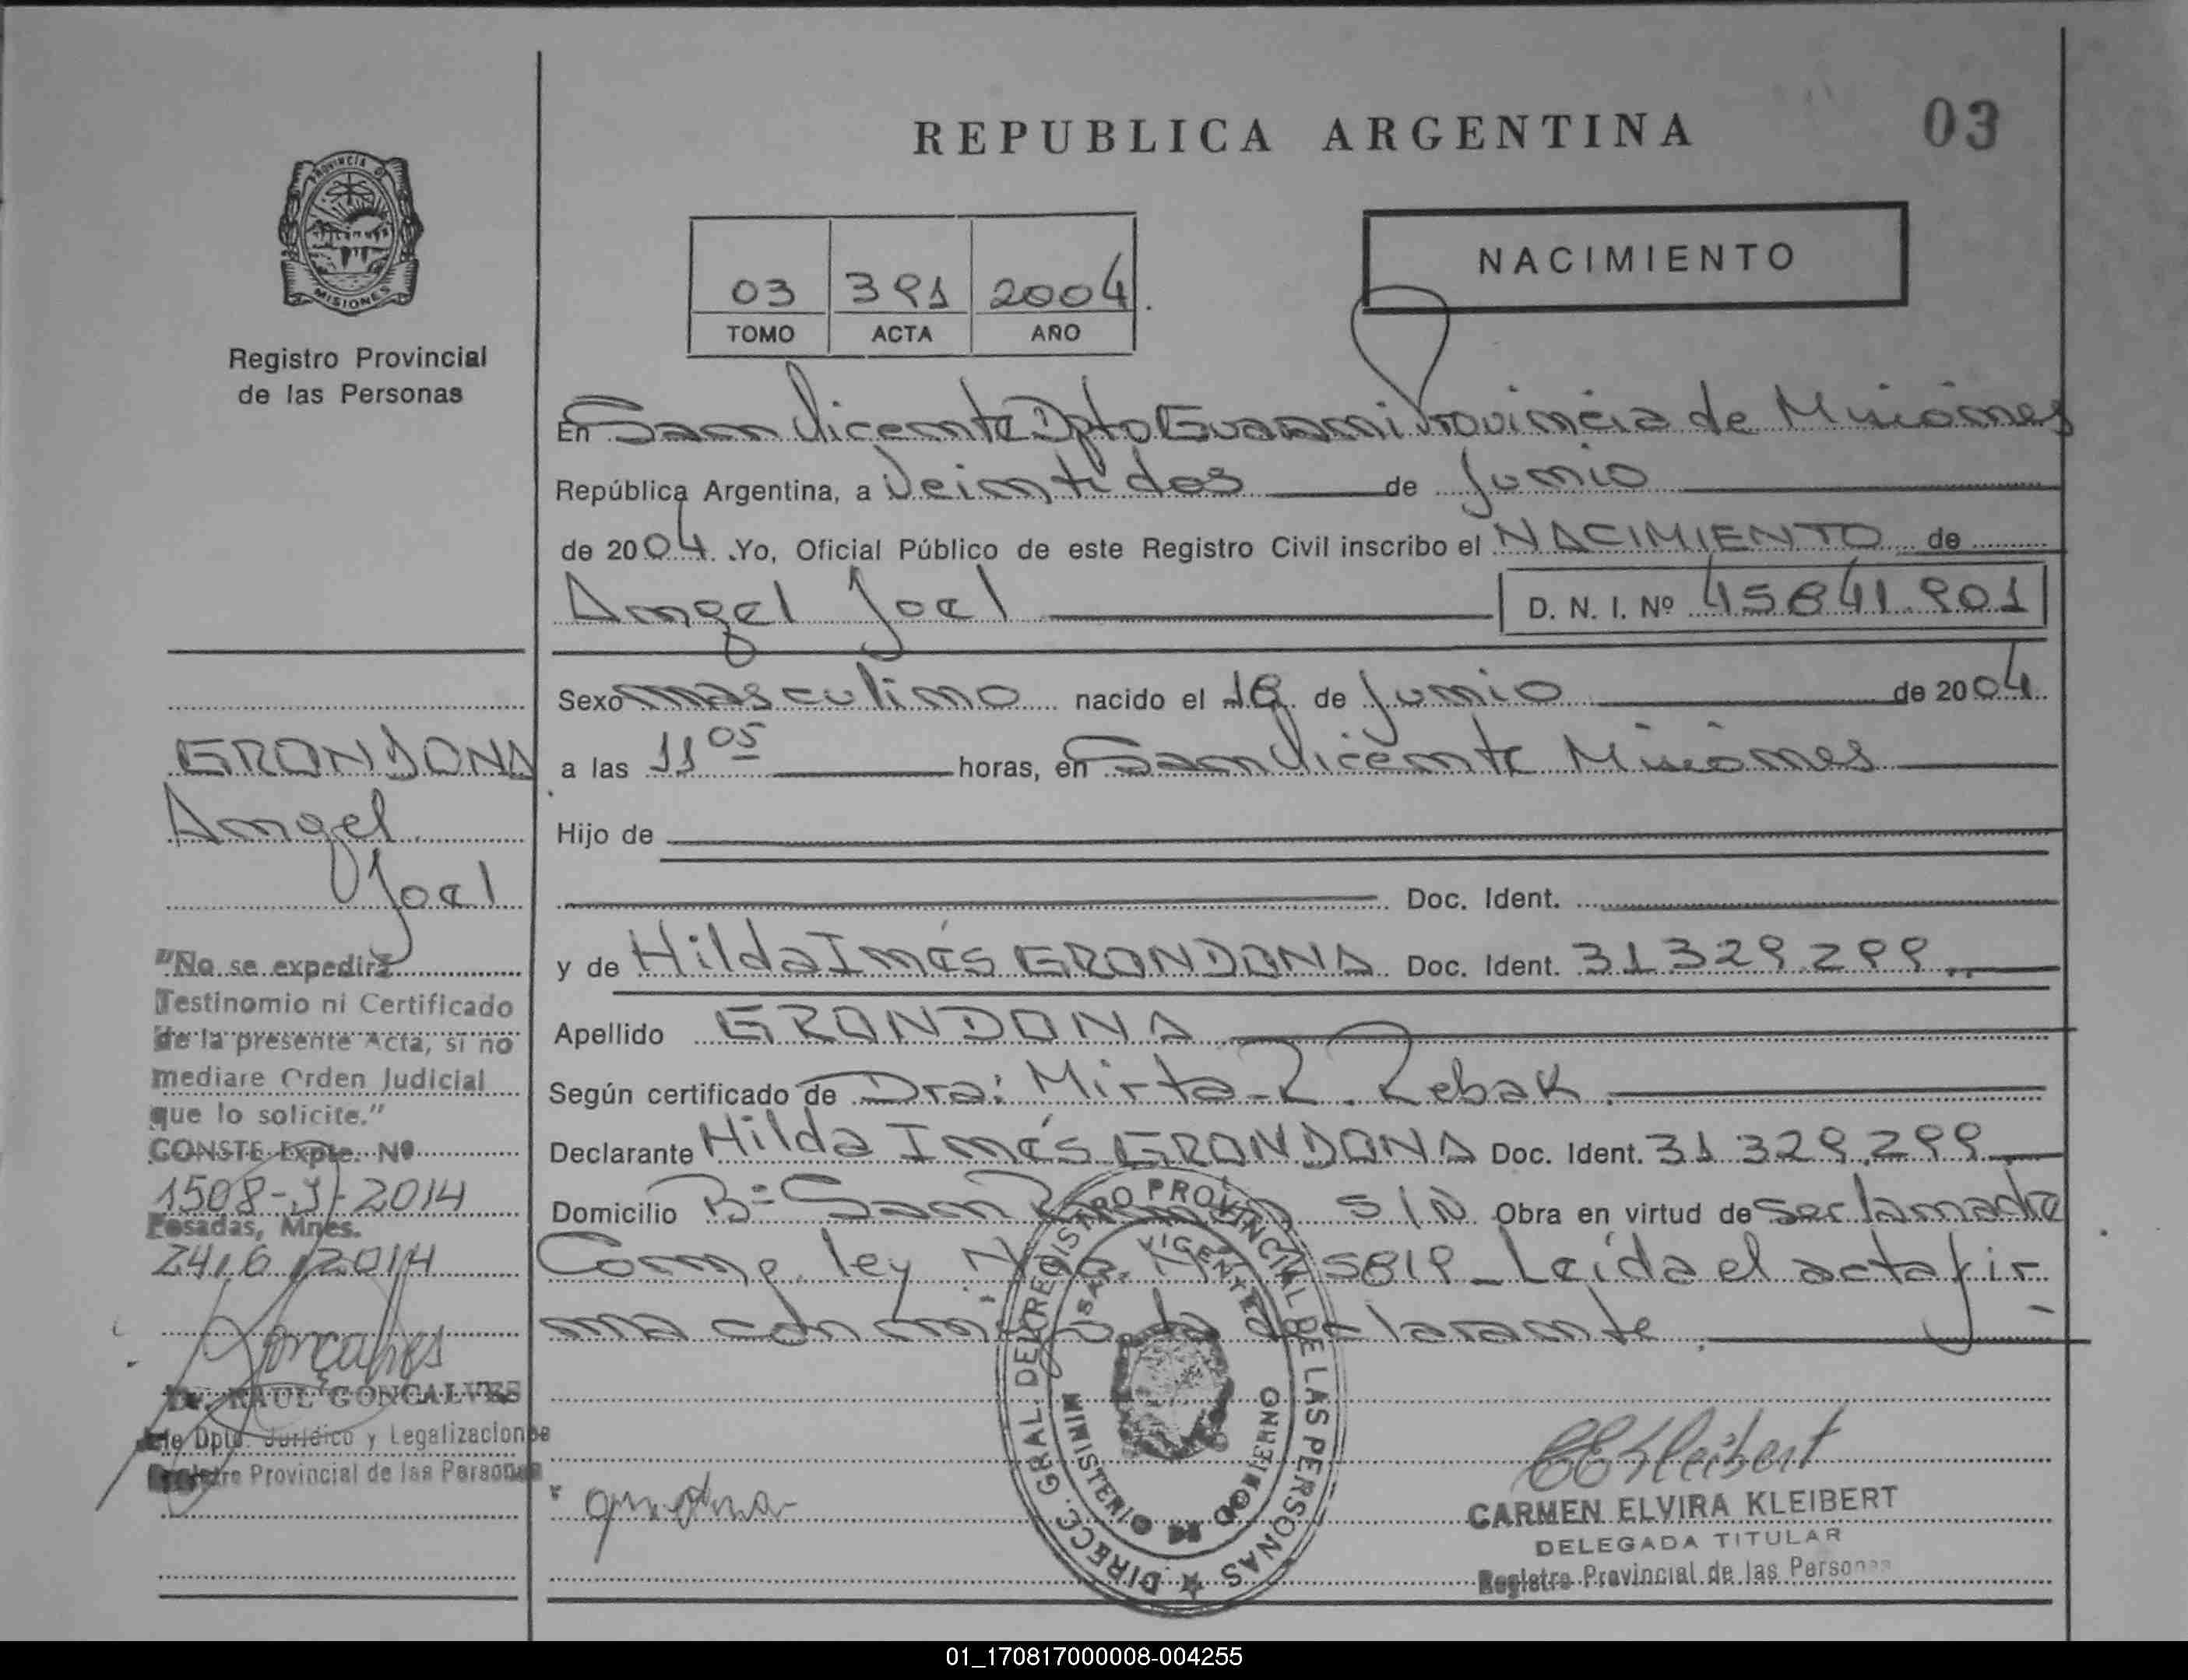 REPUBLICA ARGENTINA
03
PROVINCIA DE
MISIONES
Registro Provincial
de las Personas
NACIMIENTO
03 391 2004
TOMO ACTA AÑO
En San Vicente Dpto Guaraní Provincia de Misiones
República Argentina, a Veintidos de Junio
de 2004. Yo, Oficial Público de este Registro Civil inscribo el NACIMIENTO de
Angel Joel D. N. I. Nº 45841.901
Sexo masculino nacido el de Junio de 2004
a las 11 05 horas, en San Vicente Misiones
Hijo de
Doc. Ident.
y de Hilda Inés GRONDONA Doc. Ident. 31 329.299
Apellido GRONDONA
Según certificado de Dra: Mirta R. Rebak
Declarante Hilda Inés GRONDONA Doc. Ident. 31 329.299
Domicilio Bº San S/N Obra en virtud de ser la madre
Comp. ley Nac. Nº 5819 - Leída el acta fir
ma con la declarante
GRONDONA
Angel
Joel
"No se expedirá
Testinomio ni Certificado
de la presente Acta, si no
mediare Orden Judicial
que lo solicite."
CONSTE Expte. Nº
1508-J-2014
Posadas, Mnes.
24/6/2014
Goncalves
Dr. RAUL GONCALVES
Jefe Dpto. Jurídico y Legalizaciones
Registro Provincial de las Personas
DIRECC. GRAL. DEL REGISTRO PROVINCIAL DE LAS PERSONAS
SAN VICENTE
MINISTERIO DE GOBIERNO
CEKleibert
CARMEN ELVIRA KLEIBERT
DELEGADA TITULAR
Registro Provincial de las Personas
01_170817000008-004255